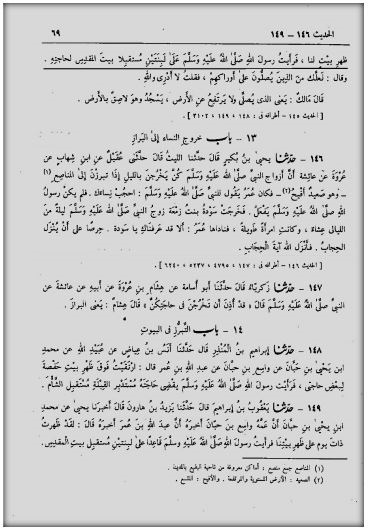 الحديث ١٤٦ - ١٤٩
٦٩
ظهرِ بيتٍ لنا ، فرأيتُ رسولَ اللهِ صَلَّى اللهُ عَلَيْهِ وَسَلَّمَ عَلَى لَبِنَتَيْنِ مُستقبِلا بيتَ المقدِسِ لحاجتِهِ .
وقال : لَعلَّكَ منَ الذِينَ يُصلُّونَ عَلَى أوراكِهِمْ ، فقلتُ لا أَدْرِى واللهِ .
قَالَ مَالكٌ : يَعنى الذى يُصلِّى ولا يَرتفِعُ عنِ الأرضِ ، يَسجُدُ وهوَ لاصِقٌ بالأرضِ .
[ الحديث ١٤٥ - أطرافه فى : ١٤٨ ، ١٤٩ ، ٣١٠٢ ]
١٣ - باب خروجِ النساءِ إلى البَرازِ
١٤٦ - حدّثنا يحيىٰ بنُ بُكَيرٍ قَالَ حدّثنا الليثُ قَالَ حَدّثنى عُقَيْلٌ عنِ ابنِ شِهابٍ عن
عُرْوَةَ عن عائِشةَ أنَّ أزواجَ النبىِّ صَلَّى اللهُ عَلَيْهِ وَسَلَّمَ كُنَّ يَخْرُجْنَ بالليلِ إِذَا تبرزْنَ إلى المناصِعِ (١)
– وَهو صَعِيدٌ أَفيَحُ (٢) – فكان عمرُ يَقولُ للنبىِّ صلَّى اللهُ عَلَيْهِ وَسَلَّمَ : احجُبْ نِساءَك . فلم يكنْ رسولُ
اللهِ صَلَّى اللهُ عَلَيْهِ وَسَلَّمَ يَفْعَلُ . فَخَرَجَتْ سَوْدَةُ بنتُ زَمْعَةَ زوجُ النبىِّ صَلَّى اللهُ عَلَيْهِ وَسَلَّمَ ليلةً منَ
الليالى عِشاءً ، وكانتِ امرأةً طويلةً ، فناداها عُمرُ : ألا قد عَرَفناكِ يا سَودة . حِرصًا على أَنْ يَنْزِلَ
الحِجابُ . فأنزلَ اللهُ آيةَ الحِجَابِ .
[ الحديث ١٤٦ - أطرافه فى : ١٤٧ ، ٤٧٩٥ ، ٥٢٣٧ ، ٦٢٤٠ ]
١٤٧ - حدّثنا زكرِيّاءُ قَالَ حَدّثَنا أبو أُسامةَ عن هِشامِ بنِ عُرْوةَ عن أبيهِ عن عائشةَ عنِ
النبىِّ صَلَّى اللهُ عَلَيْهِ وَسَلَّمَ قَالَ « قد أُذِنَ أن تَخرُجْنَ فى حاجَتِكُنَّ » قالَ هِشَامٌ : يَعنى البرازَ .
١٤ - باب التَّبَرُّزِ فى البيوتِ
١٤٨ - حدّثنا إبراهيمُ بنُ المُنْذِرِ قَالَ حَدّثَنا أَنَسُ بنُ عِياضٍ عن عُبَيدِ اللهِ عن محمدِ
ابنِ يَحْيَىٰ بنِ حَبَّانَ عن واسِعِ بنِ حَبَّانَ عن عبدِ اللهِ بنِ عُمر قال : ارْتَقَيْتُ فَوقَ ظَهْرِ بيتِ حَفْصَةَ
لِبعضِ حاجتى ، فرأيتُ رسولَ اللهِ صَلَّى اللهُ عَلَيْهِ وَسَلَّمَ يَقْضِى حَاجَتَهُ مُسْتَدْبِرَ القِبْلَةِ مُسْتَقْبِلَ الشَّأْمِ .
١٤٩ - حدّثنا يعْقُوبُ بنُ إبراهيمَ قَالَ حَدّثَنا يَزيدُ بنُ هارونَ قَالَ أَخبَرنا يحيىٰ عن محمدِ
ابنِ يحيىٰ بنِ حَبَّانَ أَنَّ عَمَّهُ واسِعَ بنَ حَبَّانَ أَخبرَهُ أَنَّ عبدَ اللهِ بنَ عُمرَ أَخبرَهُ قَالَ : لقدْ ظَهرتُ
ذاتَ يومٍ على ظَهرِ بيْتِنا فرأيتُ رسولَ اللهِ صَلَّى اللهُ عَلَيْهِ وَسَلَّمَ قاعِدًا على لَبِنتينِ مُستقبِلَ بيتِ المَقْدِسِ .
(١) المناصع جمع منصع : أماكن معروفة من ناحية البقيع بالمدينة .
(٢) الصعيد : الأرض المستوية والمرتفعة . والأفيح : المتسع .